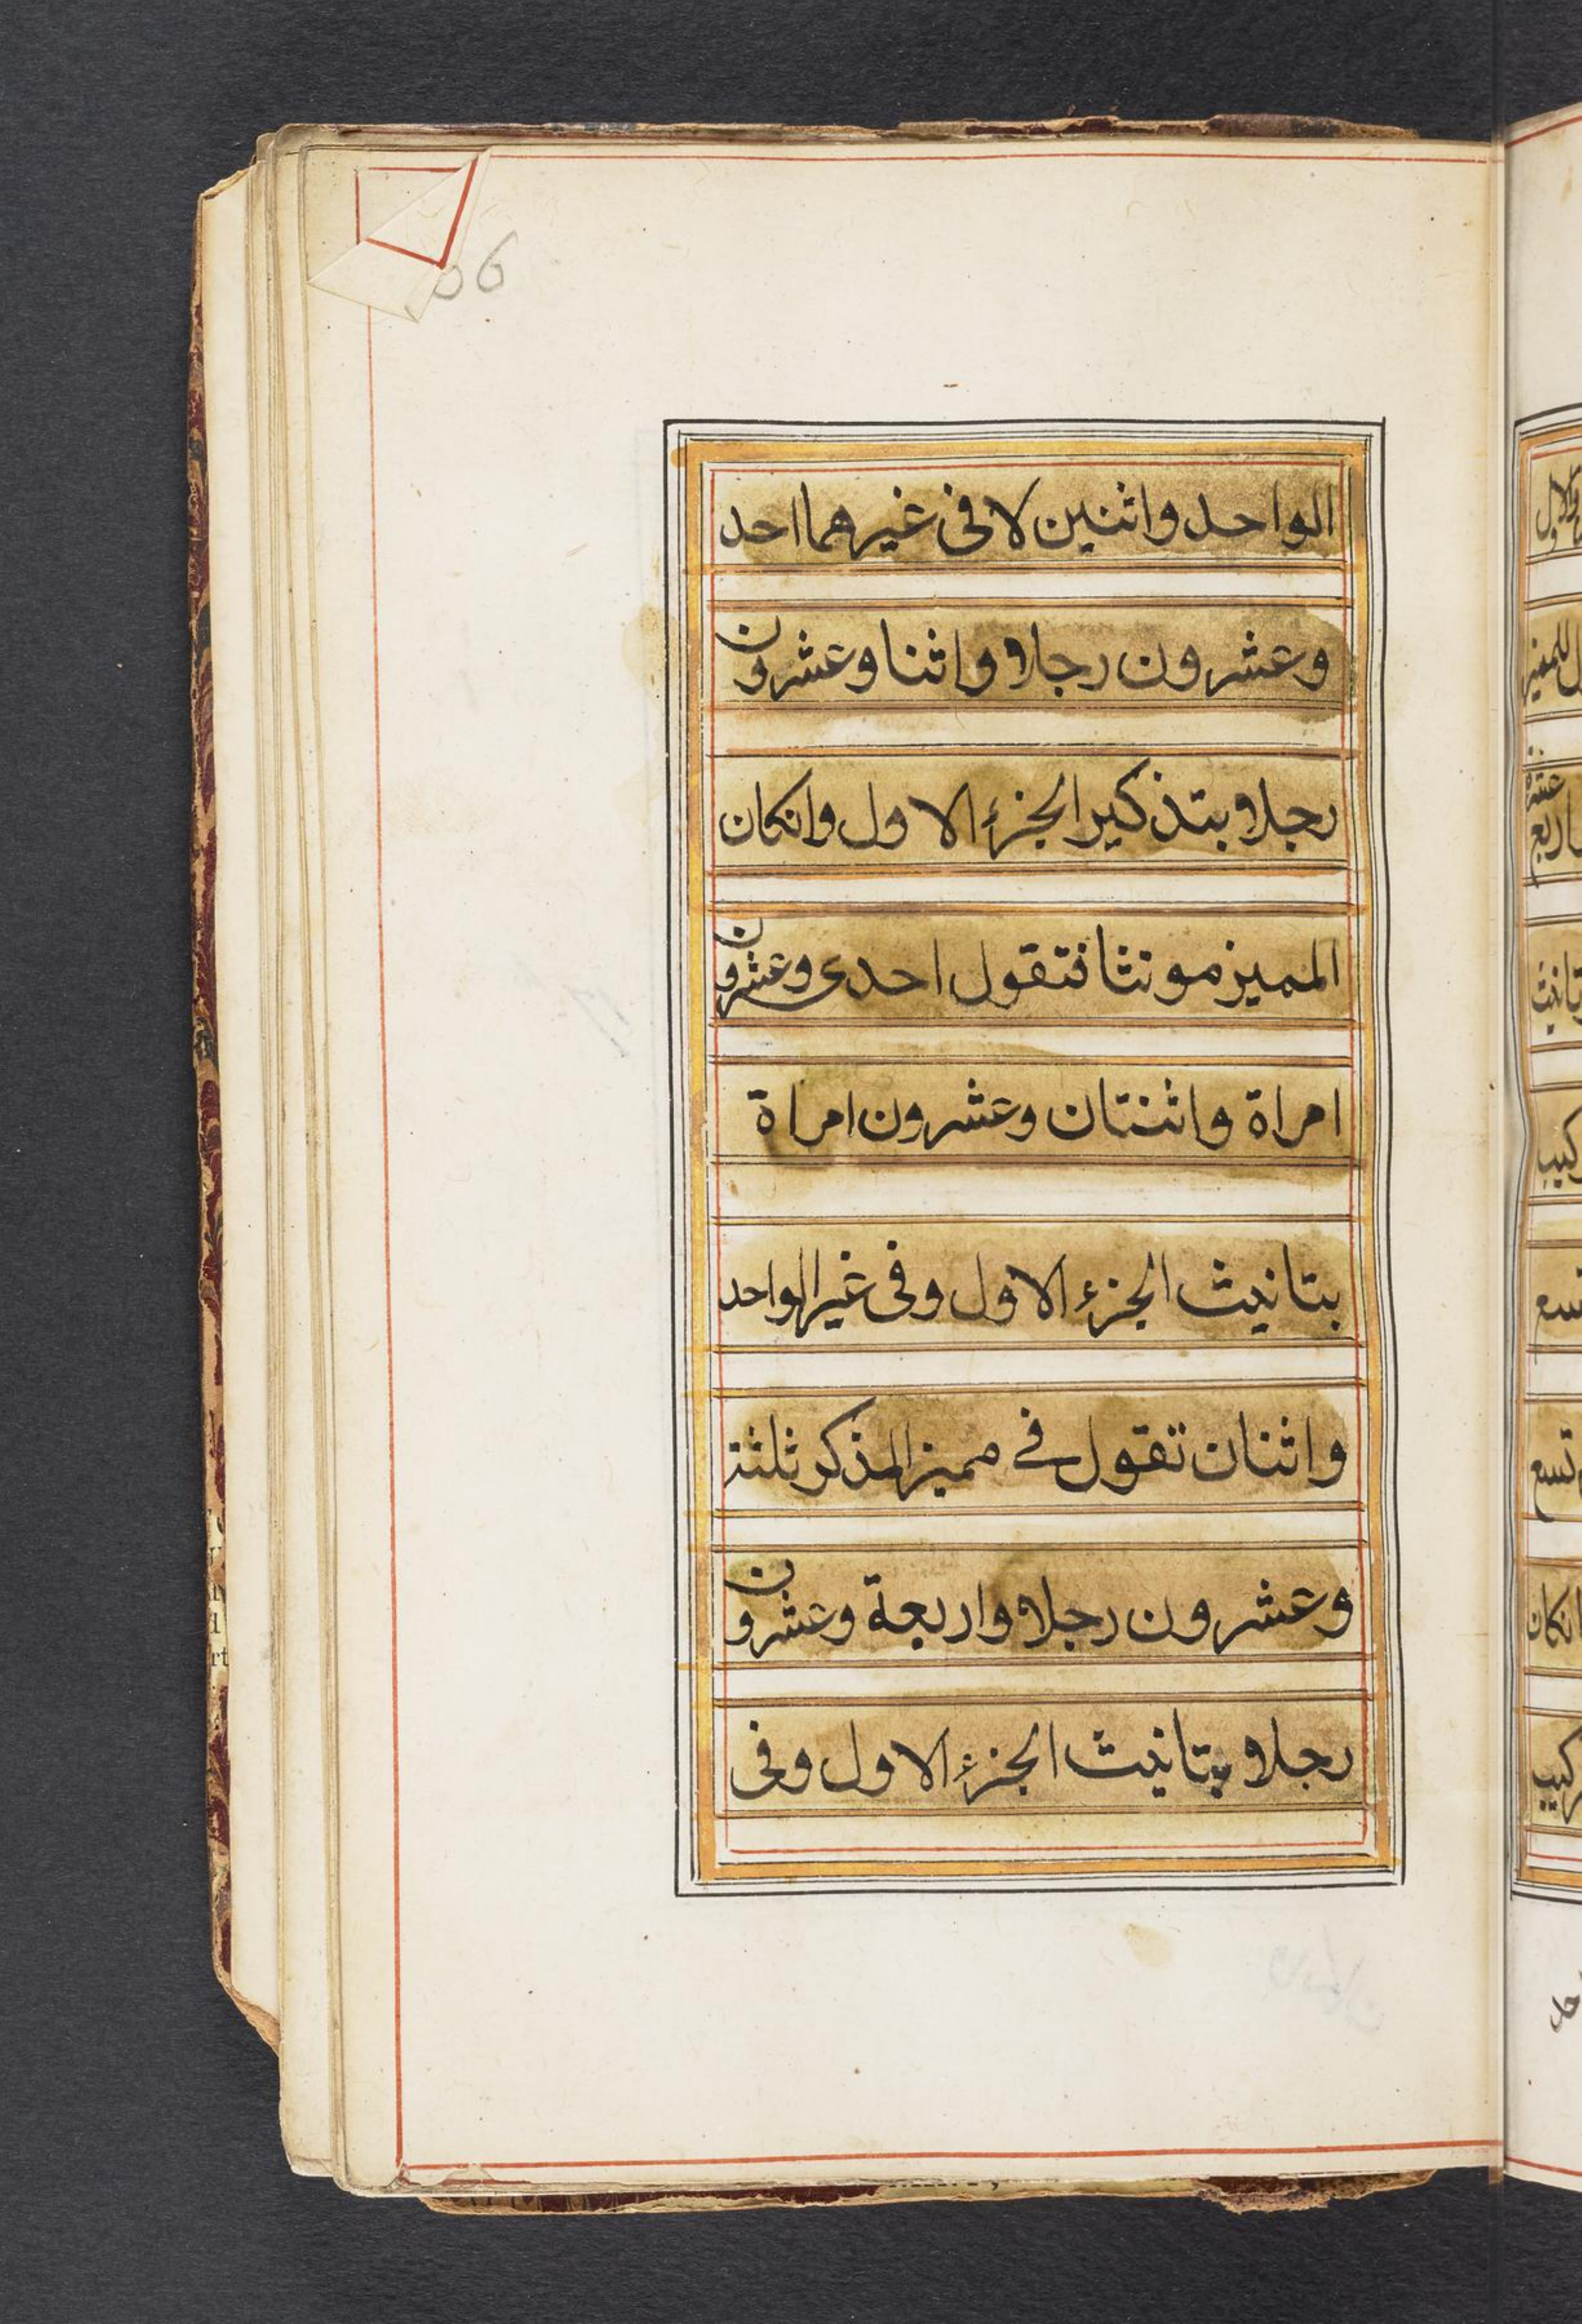 الواحد واثنين لا فى غيرهما احد
وعشرون رجلا واثنا وعشرون
رجلا بتذكير الجزء الاول وانكان
المميز مونثا فتقول احدى وعشرون
امراة واثنتان وعشرون امراة
بتانيث الجزء الاول وفى غير الواحد
واثنان تقول فى مميز المذكر ثلثة
وعشرون رجلا واربعة وعشرون
رجلا بتانيث الجزء الاول وفى